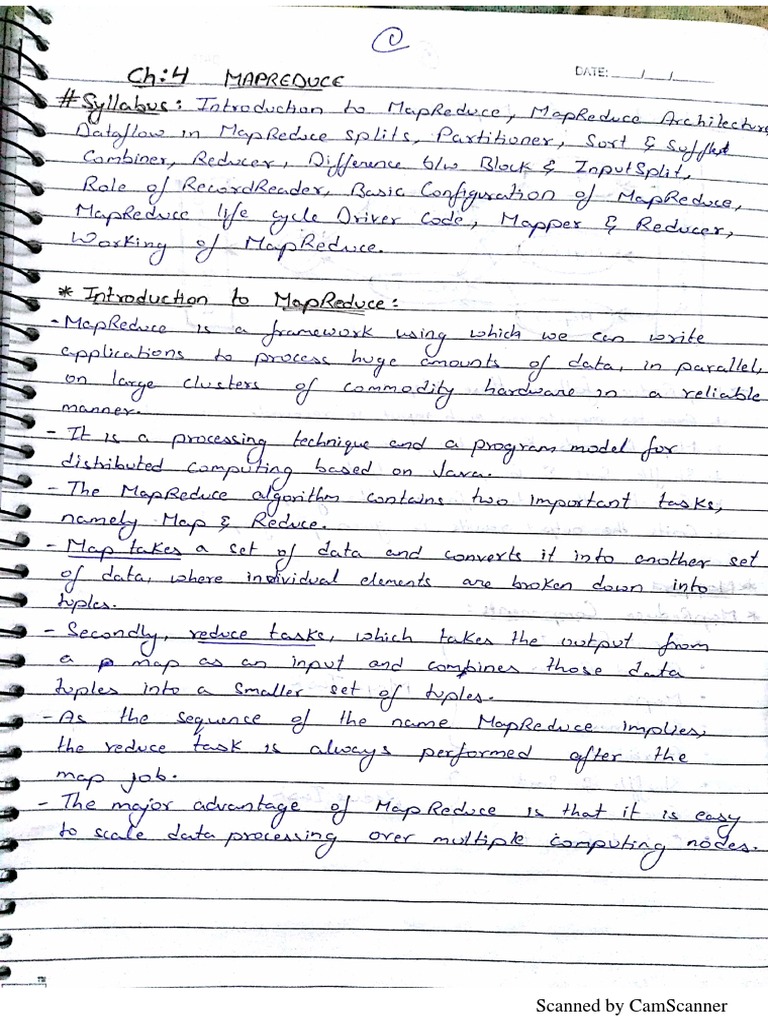 ①
Ch:4 MAPREDUCE
DATE: __/__/__
# Syllabus: Introduction to MapReduce, MapReduce Architecture
Dataflow in MapReduce splits, Partitioner, Sort &
Combiner, Reducer, Difference b/w Block & InputSplit,
Role of RecordReader, Basic Configuration of MapReduce,
MapReduce life cycle Driver Code, Mapper & Reducer,
Working of MapReduce.
* Introduction to MapReduce:
- MapReduce is a framework using which we can write
applications to process huge amounts of data, in parallel,
on large clusters of commodity hardware in a reliable
manner.
- It is a processing technique and a program model for
distributed computing based on Java.
- The MapReduce algorithm contains two important tasks,
namely Map & Reduce.
- Map takes a set of data and converts it into another set
of data, where individual elements are broken down into
tuples.
- Secondly, reduce task, which takes the output from
a map as an input and combines those data
tuples into a smaller set of tuples.
- As the sequence of the name MapReduce implies,
the reduce task is always performed after the
map job.
- The major advantage of MapReduce is that it is easy
to scale data processing over multiple computing nodes.
Scanned by CamScanner